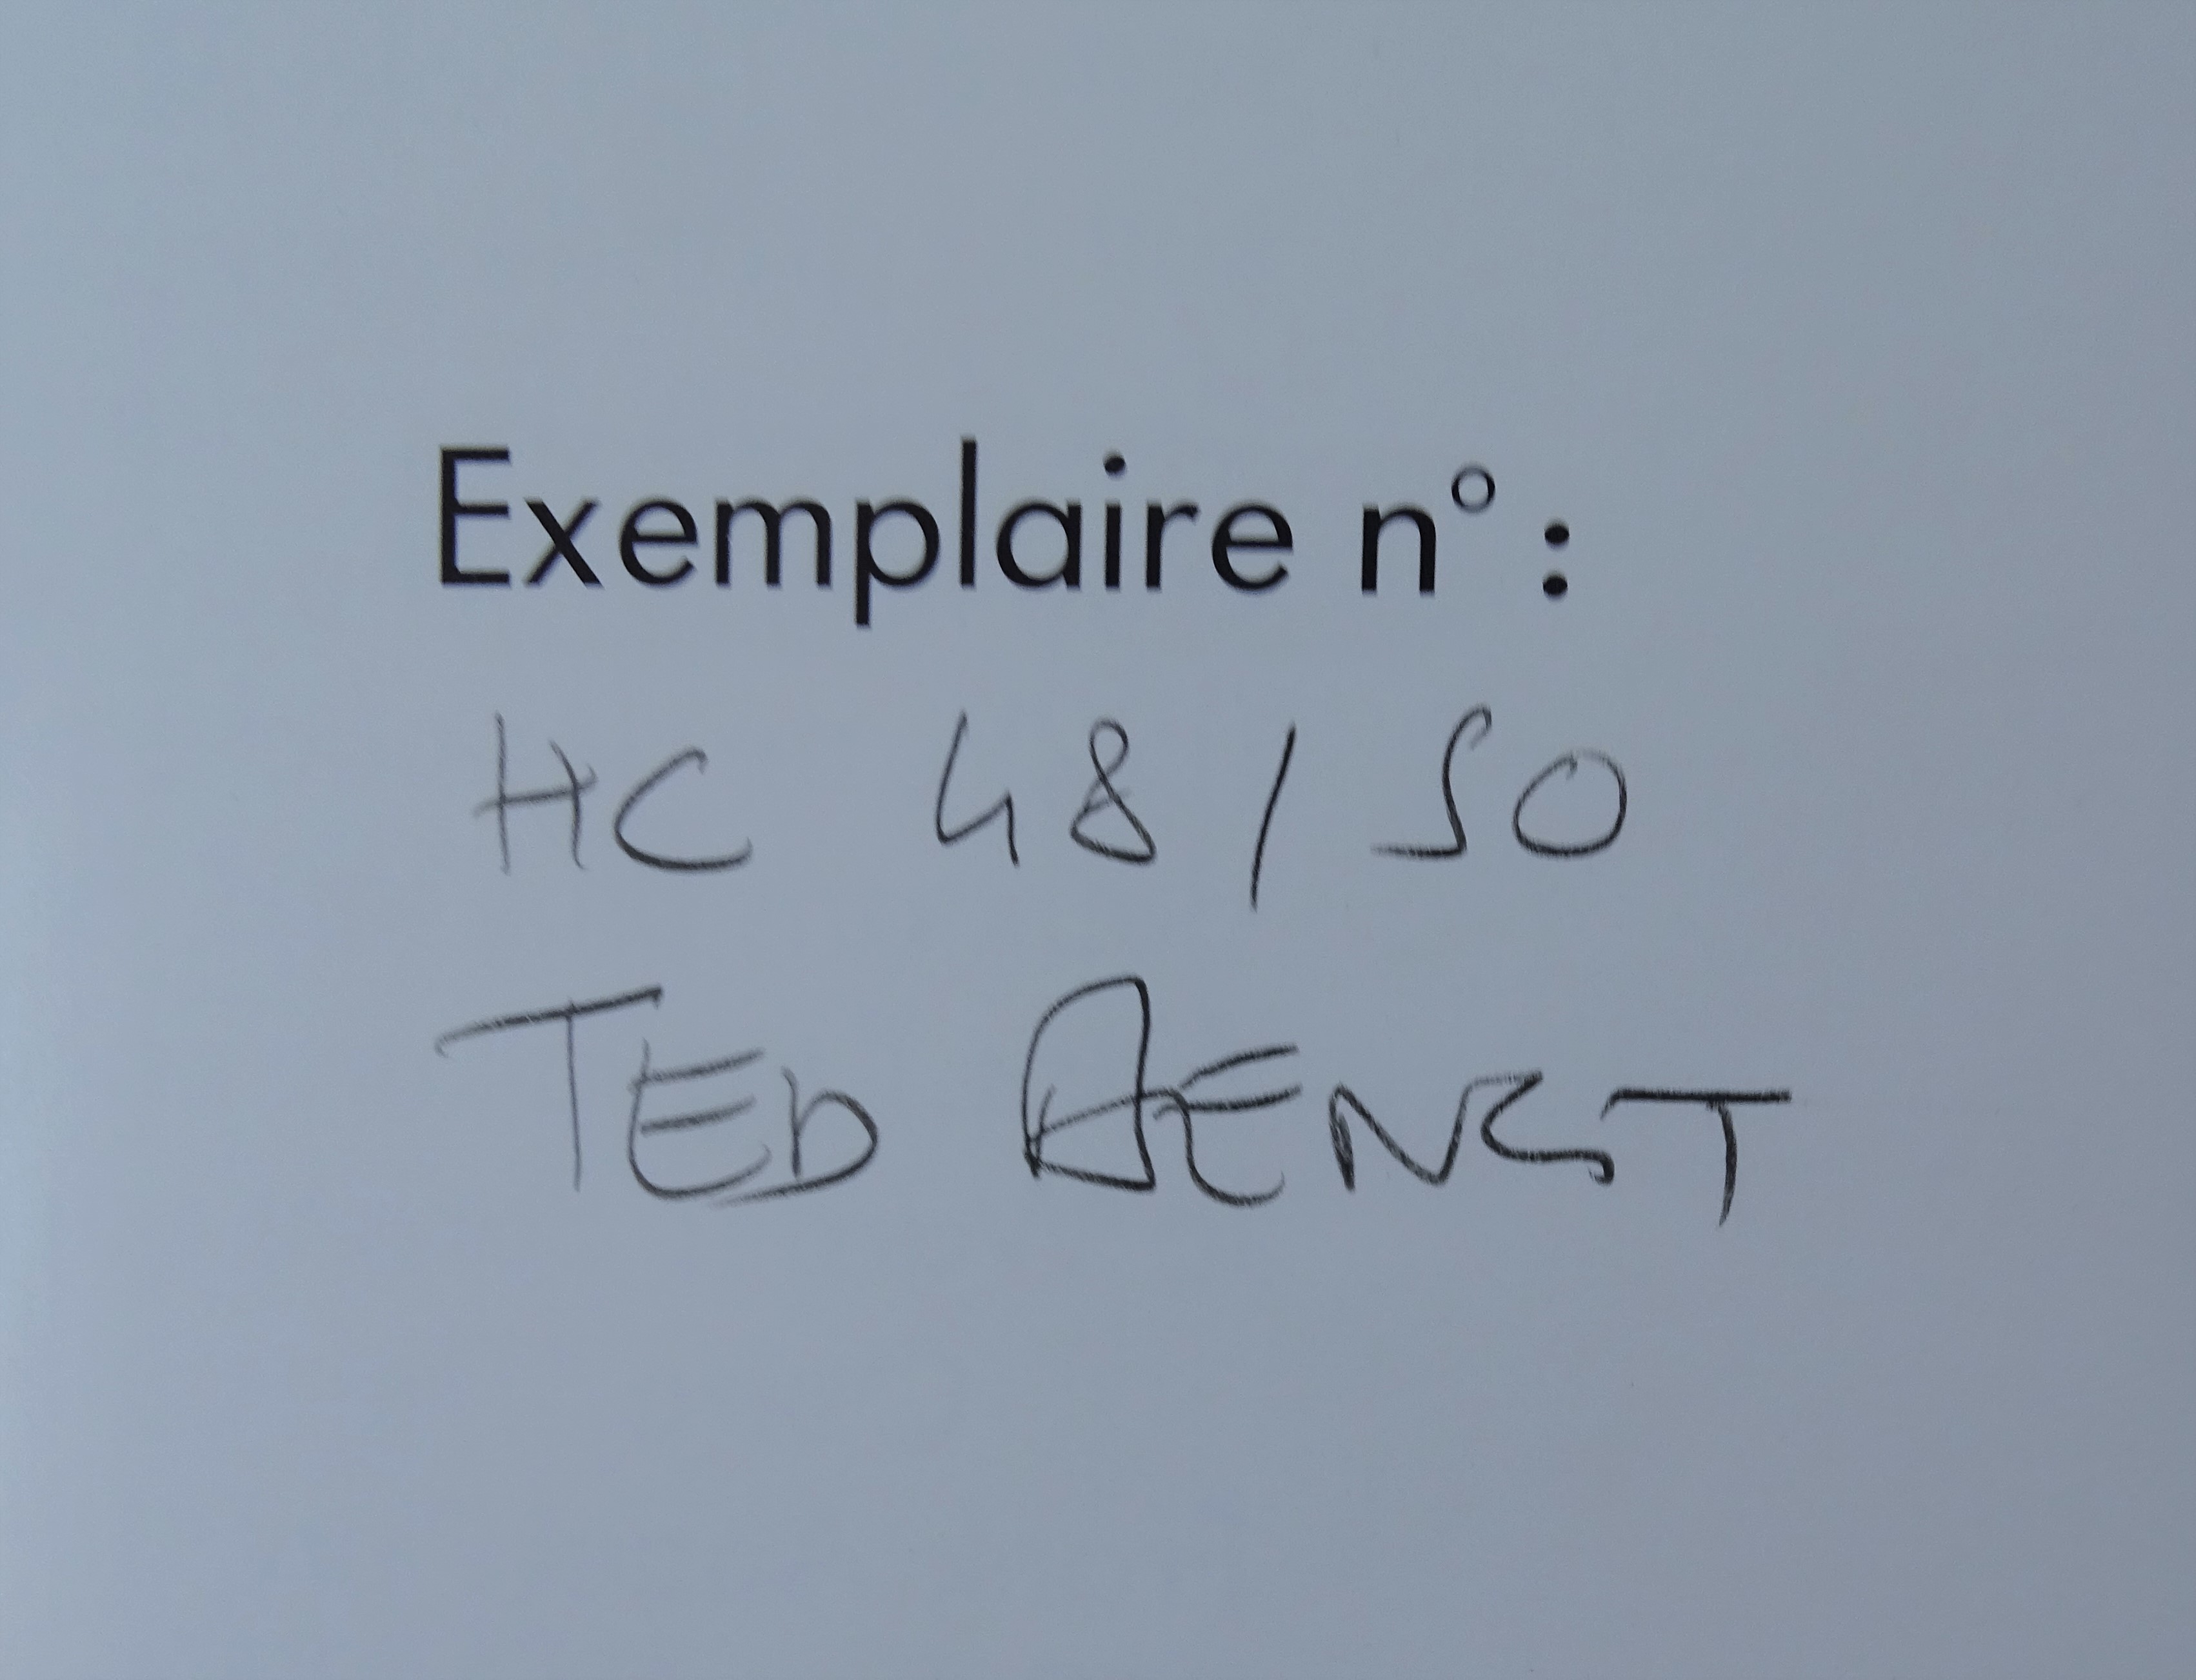 Exemplaire n° :
HC 48 / 50
TED BENST